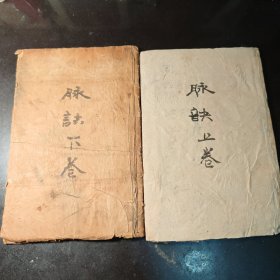 脉訣下卷
脉訣上卷